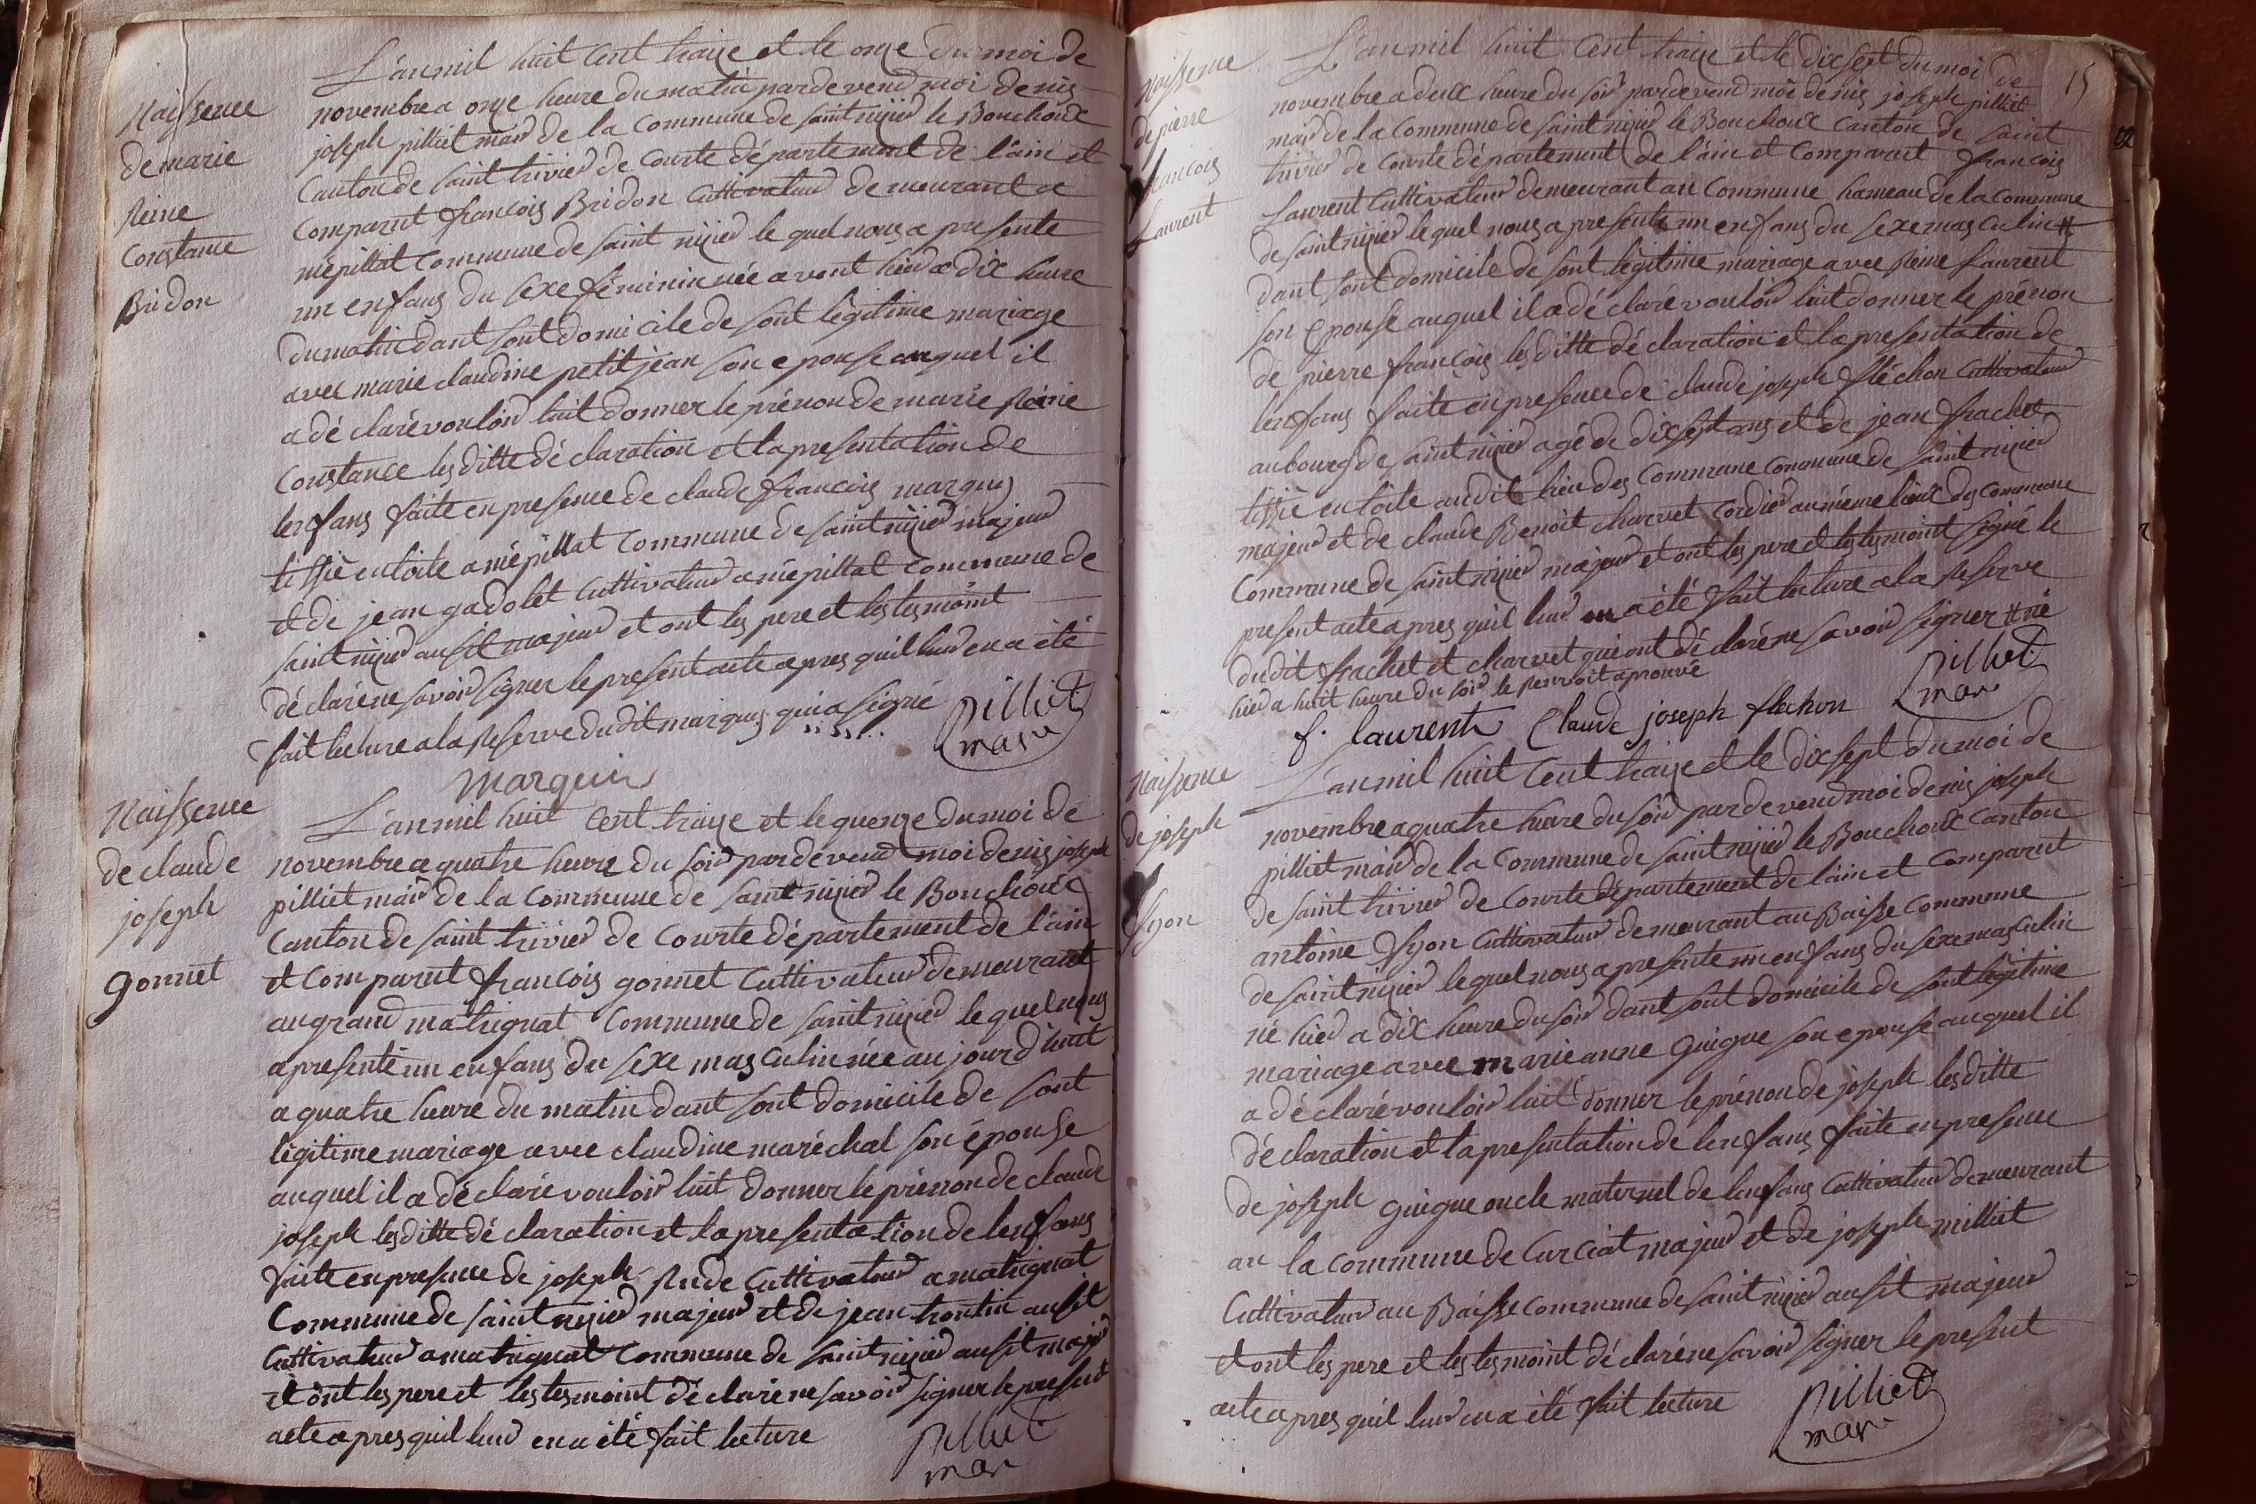 Naissence
de marie
Reine
Constance
Bridon
L'an mil huit cent traize et le onze du moi de
novembre a onze heure du matin pardevend moi denis
joseph pilliet mair de la commune de saint nizier le Bouchoux
Canton de saint trivier de Courte département de l'ain et
comparut françois Bridon Cultivateur demeurant a
mépillat commune de saint nizier le quel nous a presente
un enfans du sexe féminin née avent hier a dix heure
du matin dant sont domicile de sont légitime mariage
avec marie claudine petitjean son epouse auquel il
a déclaré vouloir luit donner le prénon de marie Reine
Constance les ditte déclaration et la presentation de
lenfans faite en presence de claude françois marquis
tissie en toile a mépillat commune de saint nizier majeur
et de jean gadolet cultivateur a mépillat commune de
saint nizier ausit majeur et ont les pere et les tesmoint
déclaré ne savoir signer le present acte apres quil leur en a été
fait lecture a la Reserve dudit marquis qui a signé
pilliet
mair
marquis
Naissence
de claude
joseph
gonnet
L'an mil huit cent traize et le quenze du moi de
novembre a quatre heure du soir pardevend moi denis joseph
pilliet mair de la commune de saint nizier le Bouchoux
Canton de saint trivier de Courte département de l'ain
et comparut françois gonnet cultivateur demeurant
au grand matrignat commune de saint nizier le quel nous
a presenté un enfans du sexe masculin née au jourd'huit
a quatre heure du matin dant sont domicile de sont
légitime mariage avec claudine maréchal son épouse
auquel il a déclaré vouloir luit donner le prénon de claude
joseph les ditte déclaration et la presentation de lenfans
faite en presence de joseph Rude cultivateur a matrignat
Commune de saint nizier majeur et de jean trontin ausit
Cultivateur a matrignat commune de saint nizier ausit majeur
et ont les pere et les tesmoint déclaré ne savoir signer le present
acte apres quil leur en a été fait lecture
pilliet
mair
15
Naissence
de pierre
françois
Laurent
L'an mil huit cent traize et le dix sept du moi de
novembre a deux heure du soir pardevend moi denis joseph pilliet
mair de la commune de saint nizier le Bouchoux canton de saint
trivier de Courte département de l'ain et comparut françois
Laurent Cultivateur demeurant au commune hameau de la commune
de saint nizier le quel nous a presenté un enfans du sexe masculin #
dant sont domicile de sont légitime mariage avec Reine Laurent
son épouse auquel il a déclaré vouloir luit donner le prénon
de pierre françois les ditte déclaration et la presentation de
lenfans faite en presence de claude joseph fléchon Cultivateur
au bourg de saint nizier agé de dix sept ans et de jean frachet
tissie en toile audit lieu des commune commune de saint nizier
majeur et de claude Benoit charvet cordier au même lieux des commune
Commune de saint nizier majeur et ont les pere et les tesmoint signé le
present acte apres quil leur en a été fait lecture a la Reserve
dudit frachet et charvet qui ont déclaré ne savoir signer # né
hier a huit heure du soir le Renvoit aprouvé
pilliet
mair
f. laurent Claude joseph flechon
Naissence
de joseph
Syon
L'an mil huit cent traize et le dix sept du moi de
novembre a quatre heure du soir pardevend moi denis joseph
pilliet mair de la Commune de saint nizier le Bouchoux canton
de saint trivier de Courte département de l'ain et comparut
antoine Syon Cultivateur demeurant au Baisse commune
de saint nizier le quel nous a presente un enfans du sexe masculin
né hier a dix heure du soir dant sont domicile de sont légitime
mariage avec marie anne guigue son epouse auquel il
a déclaré vouloir luit donner le prénon de joseph les ditte
déclaration et la presentation de lenfans faite en presence
de joseph guigue oncle maternel de lenfans Cultivateur demeurant
au la commune de Curciat majeur et de joseph milliet
Cultivateur au Baisse commune de saint nizier ausit majeur
et ont les pere et les tesmoint déclaré ne savoir signer le present
acte apres quil leur en a été fait lecture
pilliet
mair